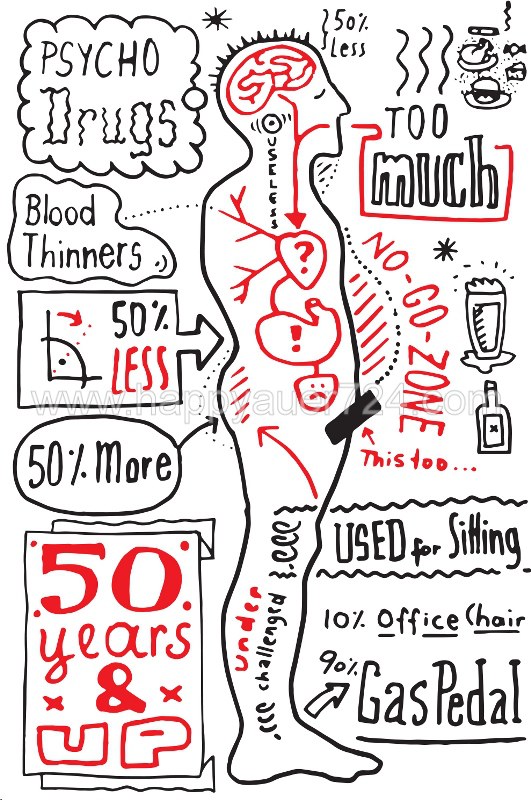 PSYCHO
Drugs
50%
Less
TOO
much
USELESS
Blood
Thinners..)
?
NO-GO-ZONE
50%
LESS
!
www.happyauer724.com
This too...
50% More
USED for Sitting
50
years
&
UP
under
challenged
10% Office Chair
90%
Gas Pedal